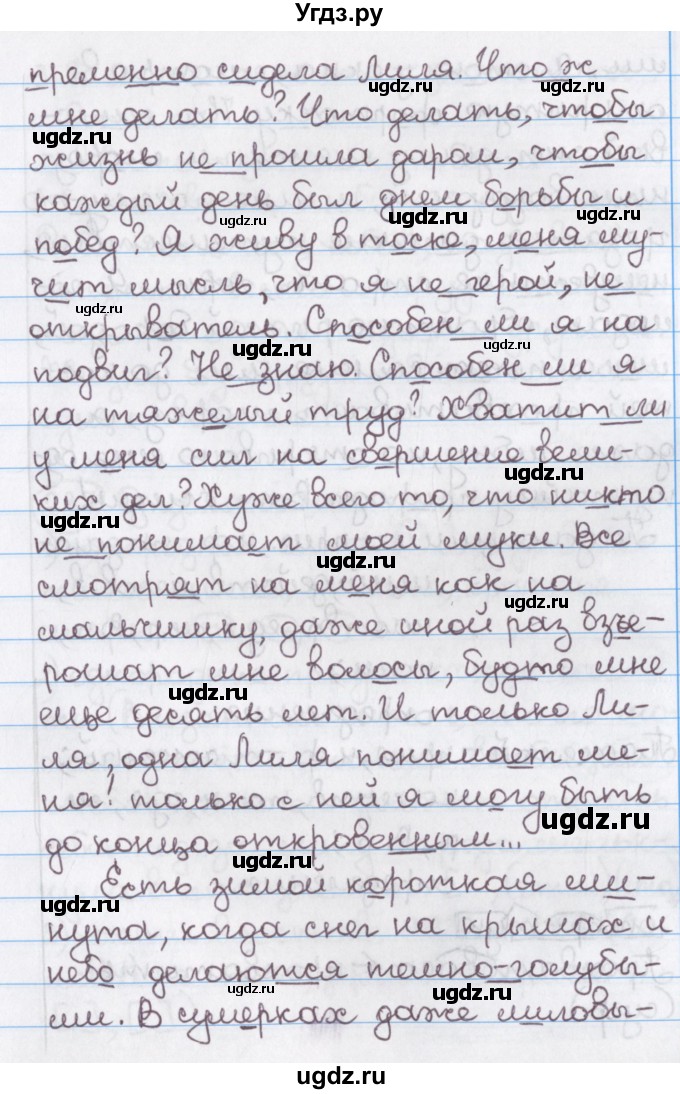 Угдз.ру
пременно сидела Лиля. Что ж
ugdz.ru ugdz.ru
мне делать? Что делать, чтобы
ugdz.ru
жизнь не прошла даром, чтобы
ugdz.ru
каждый день был днем борьбы и
ugdz.ru ugdz.ru ugdz.ru
побед? Я живу в тоске, меня му-
чит мысль, что я не герой, не
ugdz.ru
открыватель. Способен ли я на
ugdz.ru ugdz.ru
подвиг? Не знаю. Способен ли я
на тяжелый труд? Хватит ли
у меня сил на свершение вели-
ugdz.ru
ких дел? Хуже всего то, что никто
ugdz.ru
не понимает моей муки. Все
ugdz.ru
смотрят на меня как на
ugdz.ru
мальчишку, даже иной раз взъе-
рошат мне волосы, будто мне
ugdz.ru
еще десять лет. И только Ли-
ля, одна Лиля понимает ме-
ня! только с ней я могу быть
ugdz.ru
до конца откровенным...
ugdz.ru
Есть зимой короткая ми-
ugdz.ru
нута, когда снег на крышах и
небо делаются темно-голубы-
ugdz.ru ugdz.ru
ми. В сумерках даже лиловы-
ugdz.ru